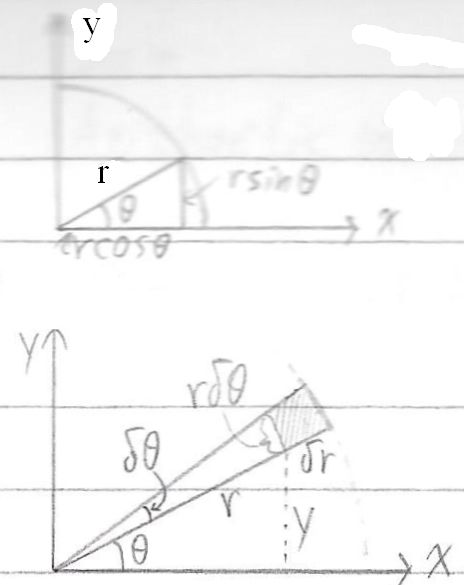 y
r
θ
r sinθ
x
r cosθ
y
rδθ
δθ
δr
r
y
θ
x